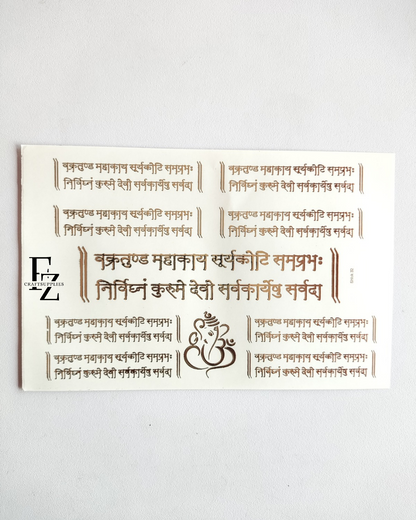 ॥ वक्रतुण्ड महाकाय सूर्यकोटि समप्रभः ॥
निर्विघ्नं कुरुमे देवो सर्वकार्येषु सर्वदा
॥ वक्रतुण्ड महाकाय सूर्यकोटि समप्रभः ॥
निर्विघ्नं कुरुमे देवो सर्वकार्येषु सर्वदा
॥ वक्रतुण्ड महाकाय सूर्यकोटि समप्रभः ॥
निर्विघ्नं कुरुमे देवो सर्वकार्येषु सर्वदा
॥ वक्रतुण्ड महाकाय सूर्यकोटि समप्रभः ॥
निर्विघ्नं कुरुमे देवो सर्वकार्येषु सर्वदा
॥ वक्रतुण्ड महाकाय सूर्यकोटि समप्रभः ॥
निर्विघ्नं कुरुमे देवो सर्वकार्येषु सर्वदा
FZ
CRAFTSUPPLIES
॥ वक्रतुण्ड महाकाय सूर्यकोटि समप्रभः ॥
निर्विघ्नं कुरुमे देवो सर्वकार्येषु सर्वदा
॥ वक्रतुण्ड महाकाय सूर्यकोटि समप्रभः ॥
निर्विघ्नं कुरुमे देवो सर्वकार्येषु सर्वदा
॥ वक्रतुण्ड महाकाय सूर्यकोटि समप्रभः ॥
निर्विघ्नं कुरुमे देवो सर्वकार्येषु सर्वदा
॥ वक्रतुण्ड महाकाय सूर्यकोटि समप्रभः ॥
निर्विघ्नं कुरुमे देवो सर्वकार्येषु सर्वदा